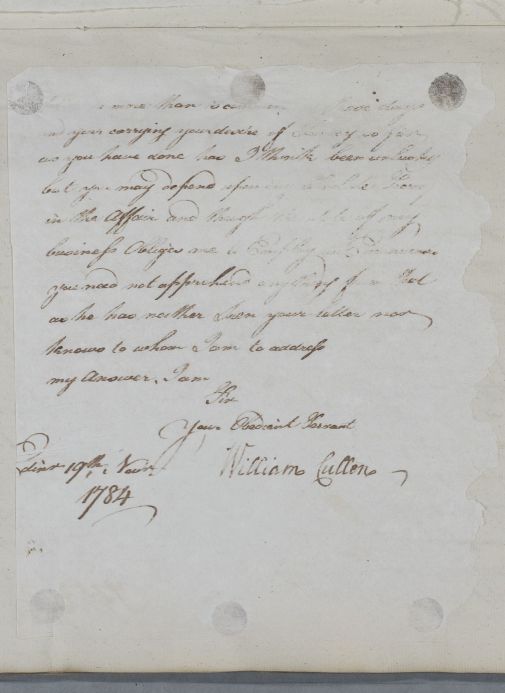 more than is common in these days
and your carrying your desire of Secrecy so far
as you have done has I think been unlucky
but you may depend upon my
in the Affair and though the state of my
business Obliges me to Employ an Amanuensis
you need not apprehend anything from that
as he has neither seen your letter nor
knows to whom I am to address
my Answer. I am
Sir
Your Obedient Servant
Edinr 19th Novr
William Cullen
1784